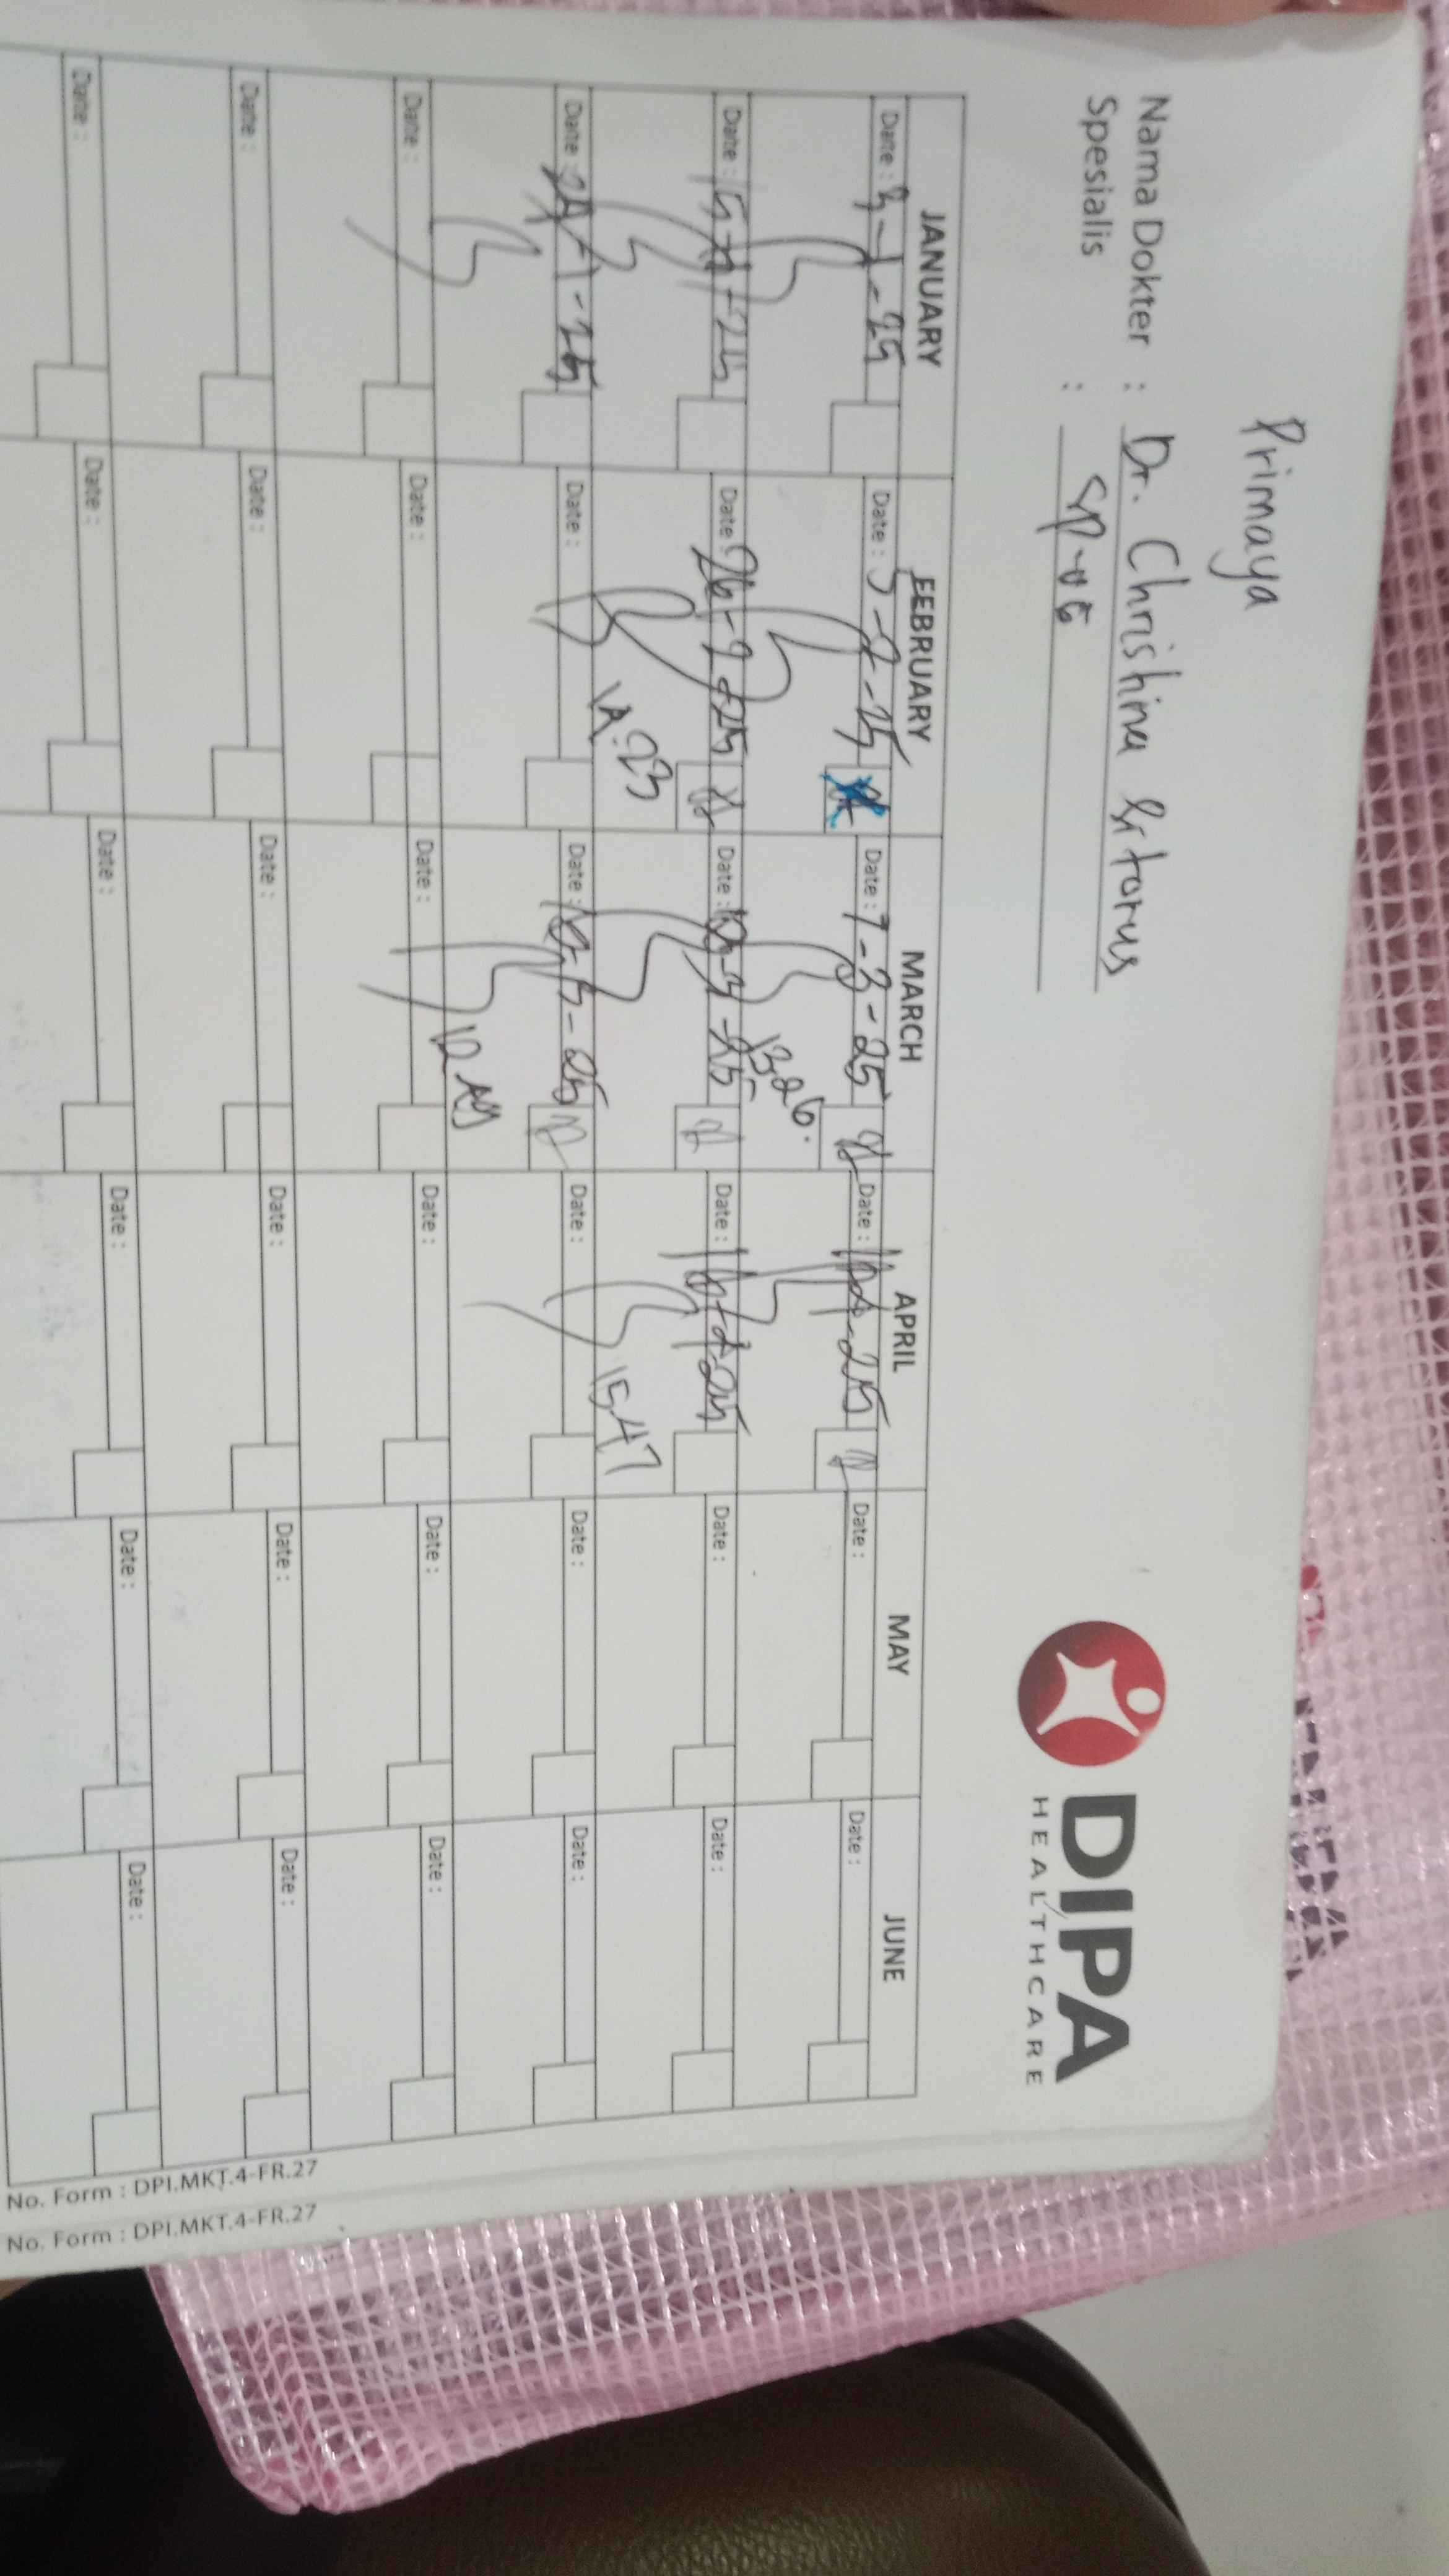 Primaya
DIPA
HEALTHCARE
Nama Dokter : Dr. Christina Sitorus
Spesialis : Sp-OG
JANUARY FEBRUARY MARCH APRIL MAY JUNE
Date : 3-1-25 Date : 5-2-25 Date : 7-3-25 Date : Date : Date :
13.26.
Date : 15-1-25 Date : 26-2-25 Date : Date : 16-4-25 Date : Date :
14.23 15.47
Date : 24-1-25 Date : Date : Date : Date : Date :
Date : Date : Date : Date : Date : Date :
Date : Date : Date : Date : Date : Date :
Date : Date : Date : Date : Date : Date :
No. Form : DPI.MKT.4-FR.27
No. Form : DPI.MKT.4-FR.27